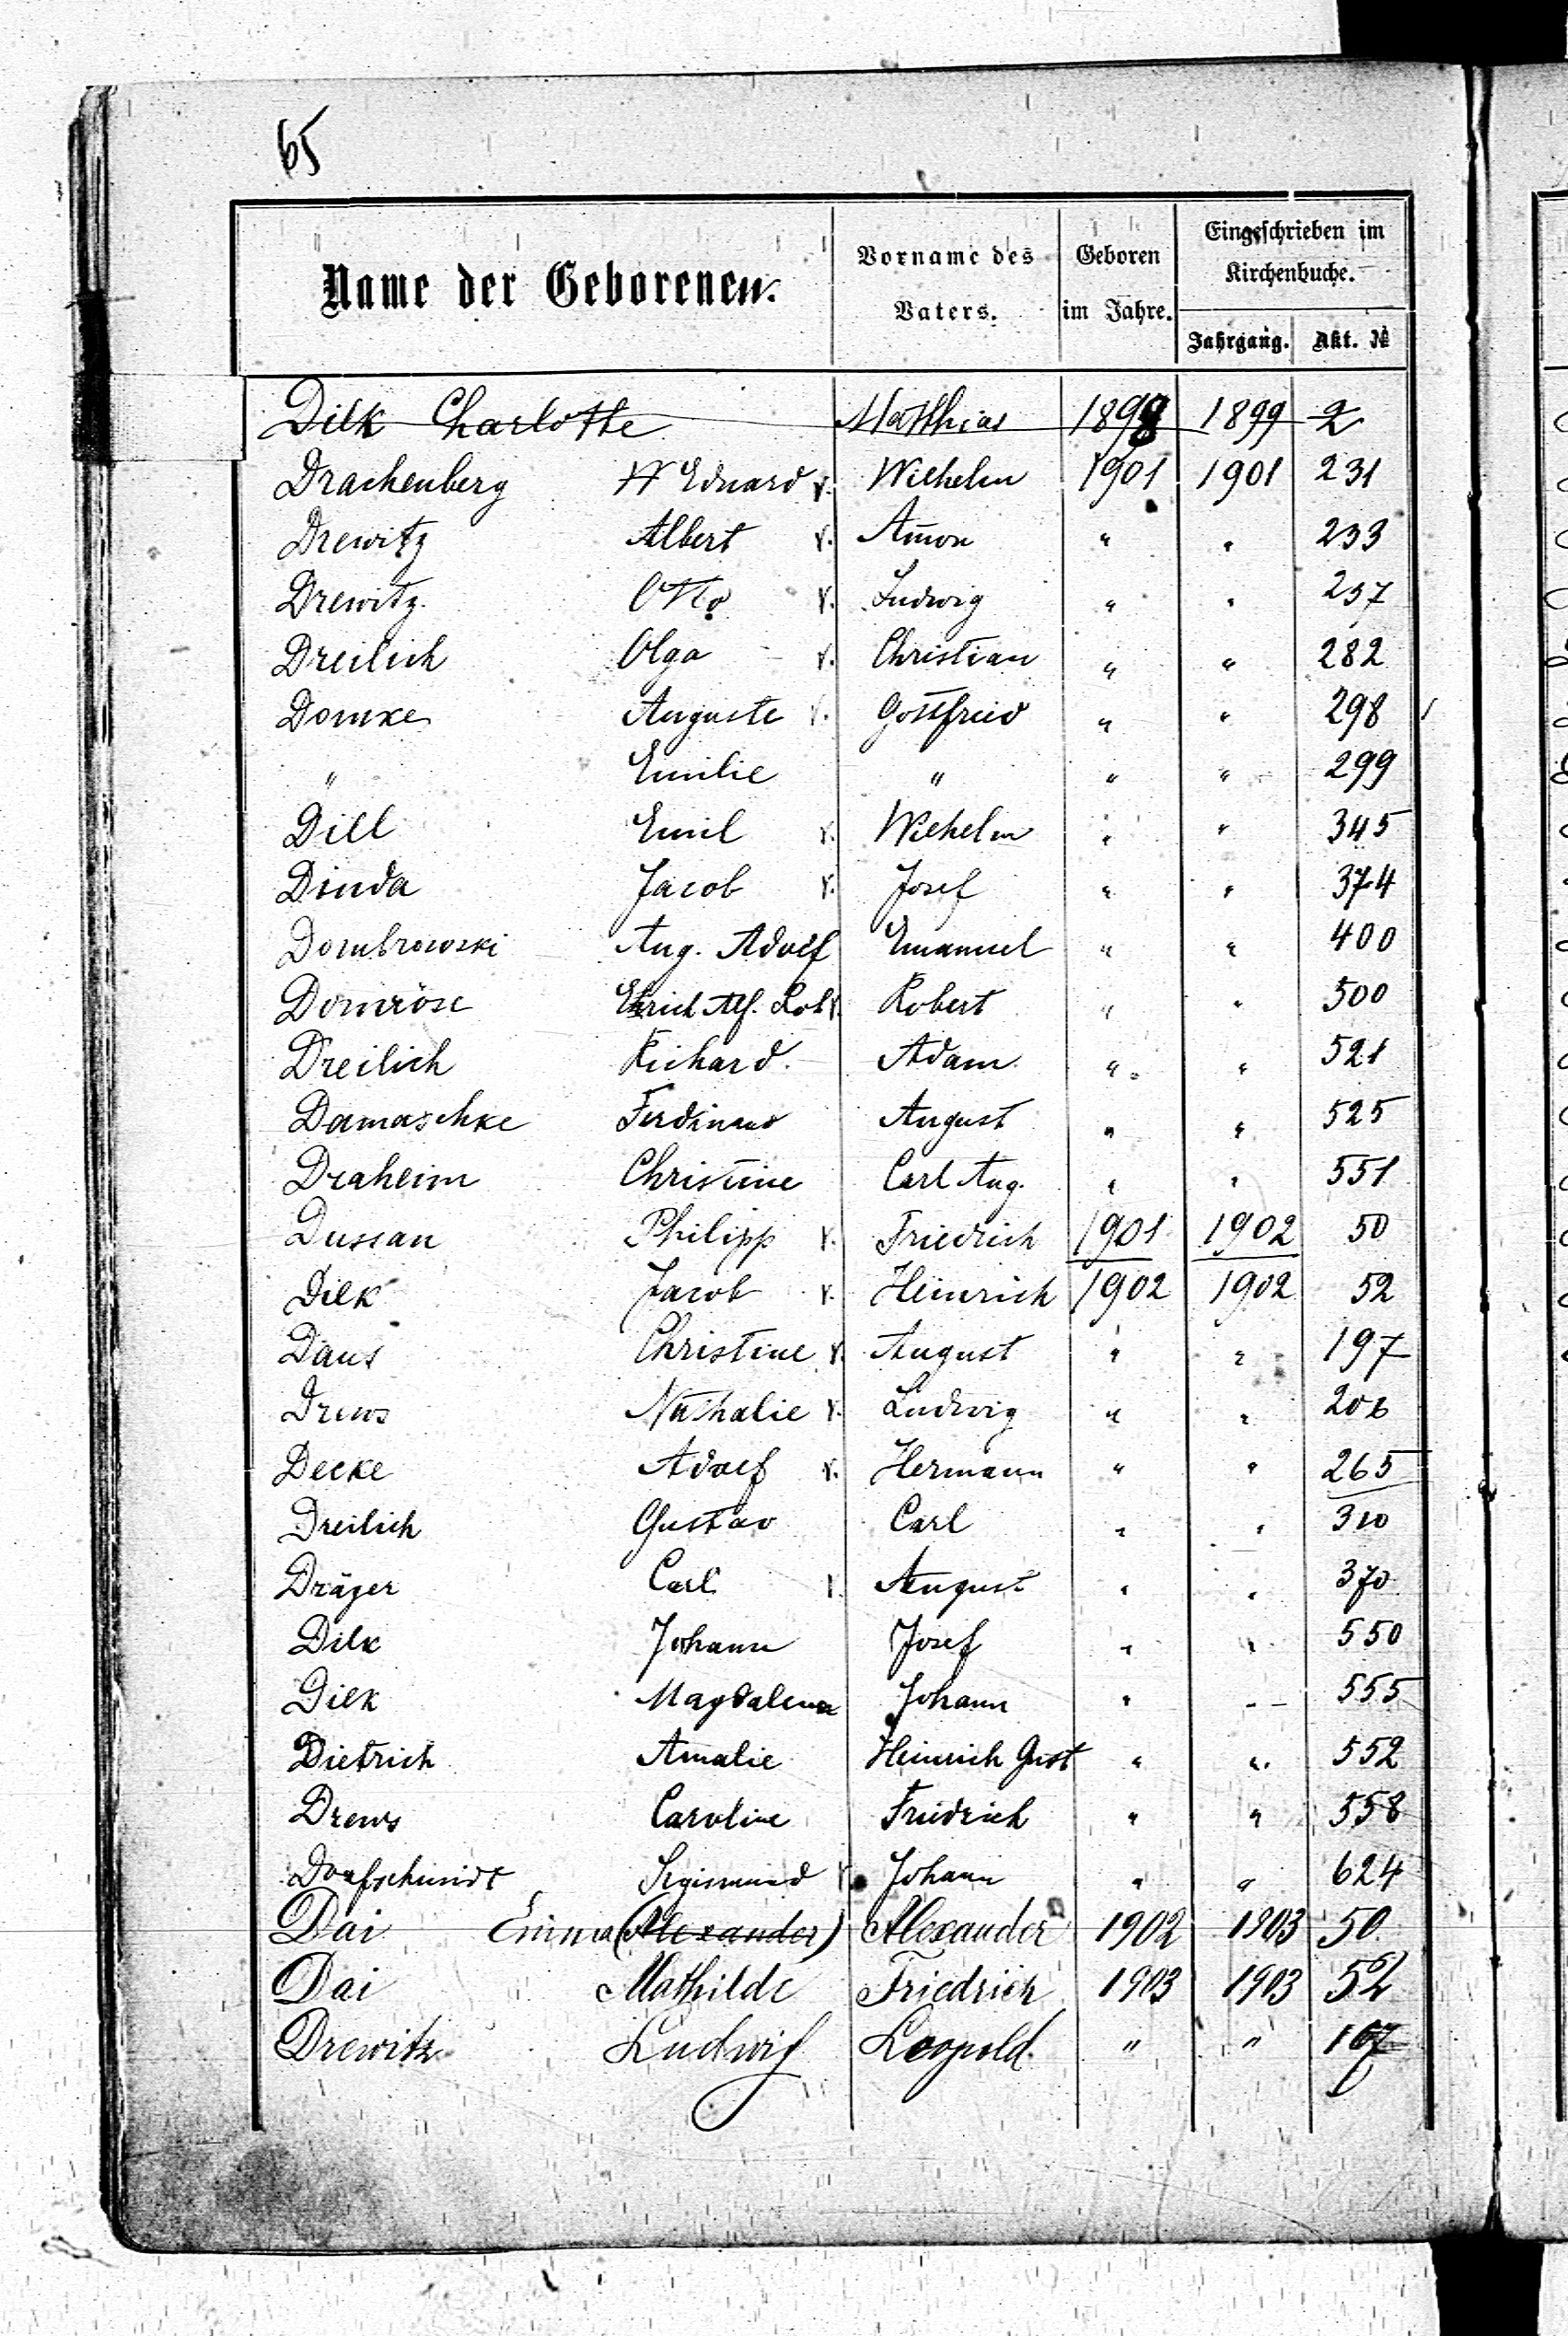 65
Name der Geborenen. Vorname des Vaters. Geboren im Jahre. Eingeschrieben im Kirchenbuche.
Jahrgang. Akt. №
Dilk Charlotte Matthias 1898 1899 2
Drachenberg W Eduard v. Wilhelm 1901 1901 231
Drewitz Albert v. " " 233
Drewitz Otto v. Ludwig " " 237
Dreilich Olga v. Christian " " 282
Domke Auguste v. Gottfried " " 298
" Emilie " " " 299
Dill Emil v. Wilhelm " " 345
Dinda Jacob v. Josef " " 374
Dombrowski Aug. Adolf Emanuel " " 400
Domröse Erich Alf. Rob v. Robert " " 500
Dreilich Richard. Adam " " 521
Damaschke Ferdinand August " " 525
Draheim Christine Carl Aug. " " 551
Dussan Philipp v. Friedrich 1901 1902 50
Dilk Jacob v. Heinrich 1902 1902 52
Daus Christine v. August " " 197
Drews Nathalie v. Ludwig " "
Decke Adolf v. Hermann " " 265
Dreilich Gustav Carl " " 310
Dräger Carl v. August " " 370
Dilk Johann Josef " " 550
Dilk Magdalena Johann " " 555
Dietrich Amalie Heinrich Gust " " 552
Drews Caroline Friedrich " " 558
Dorfschmidt Sigismund v. Johann " " 624
Dai Emma (Alexander) Alexander 1902 1903 50
Dai Mathilde Friedrich 1903 1903 52
Drewitz Ludwig Leopold " " 167